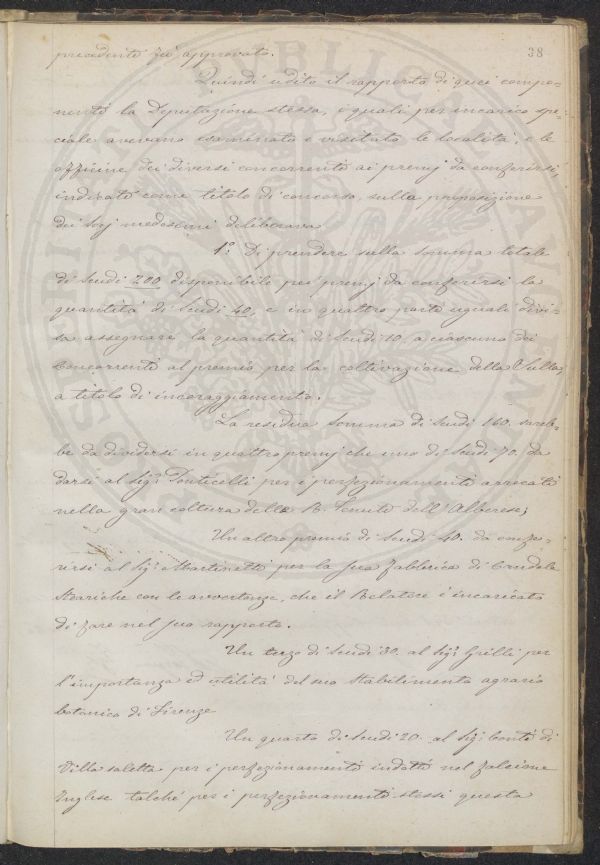 38
precedenti fu approvato.
Quindi udito il rapporto di quei compo-
nenti la Deputazione stessa, i quali per incarico spe-
ciale avevano esaminato e visitato le località, e le
officine dei diversi concorrenti ai premj da conferirsi,
indicato come titolo di concorso, sulla proposizione
dei Sigj medesimi deliberava
1º: Di prendere sulla Somma totale
di Scudi 200 disponibile per premj da conferirsi la
quantità di Scudi 40, e in quattro parti uguali divi-
sa assegnare la quantità di Scudi 10, a ciascuno dei
Concorrenti al premio per la coltivazione della Sulla,
a titolo di incoraggiamento.
La residua Somma di Scudi 160. sareb-
be da dividersi in quattro premj che uno di Scudi 70. da
darsi al Sigr Ponticelli per i perfezionamenti arrecati
nella gran coltura della R. Tenuta dell'Alberese;
Un altro premio di Scudi 40. da confe-
rirsi al Sigr Martinetti per la sua Fabbrica di Candele
Steariche con le avvertenze, che il Relatore è incaricato
di fare nel suo rapporto.
Un terzo di Scudi 30. al Sigr Grilli per
l'importanza ed utilità del suo Stabilimento agrario
botanico di Firenze
Un quarto di Scudi 20. al Sigr Conte di
Villa saletta per i perfezionamenti indotti nel falcione
Inglese talché per i perfezionamenti stessi questa